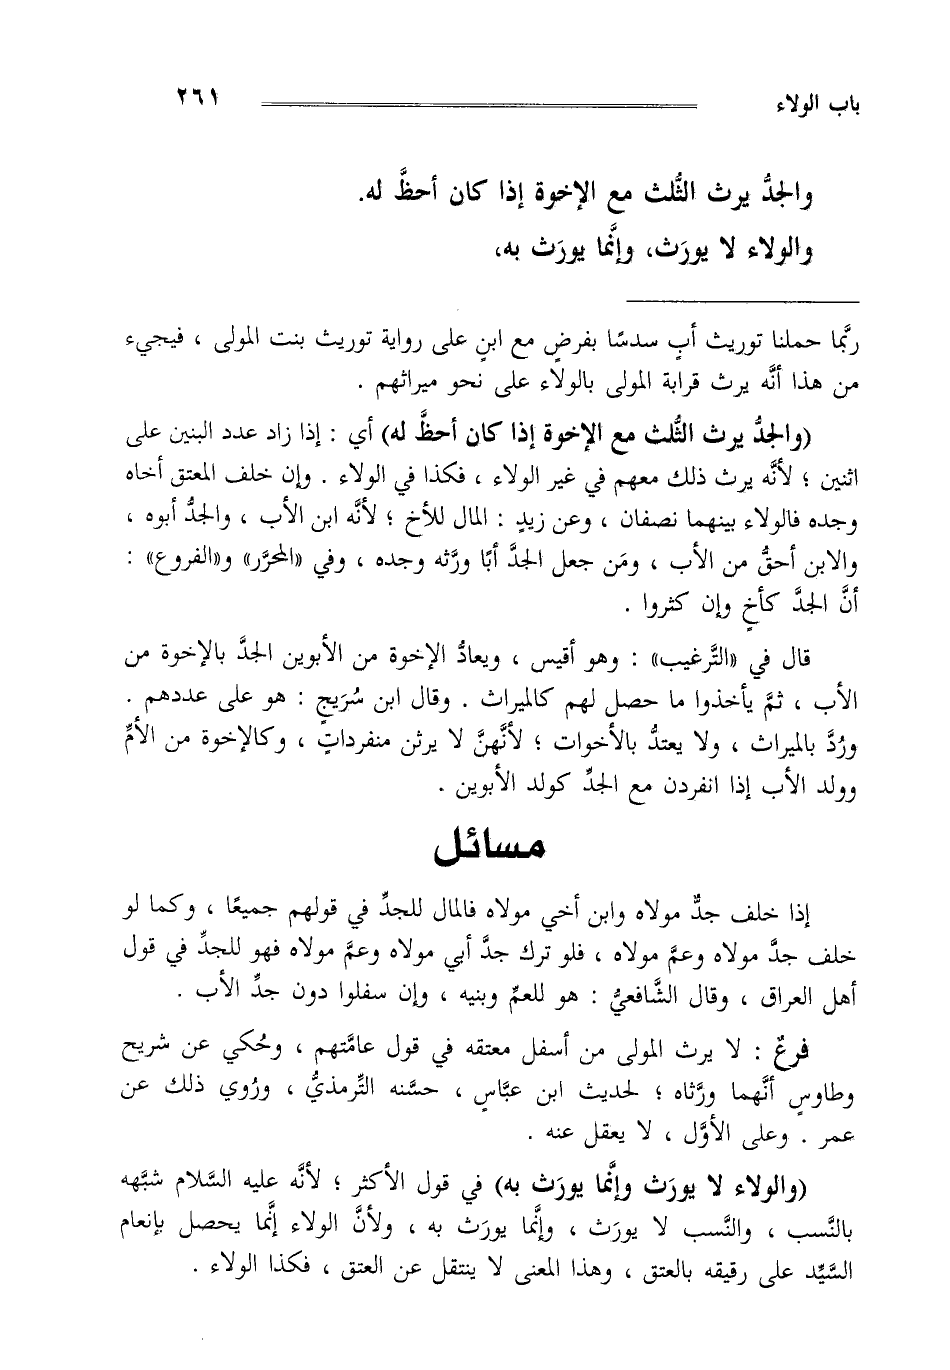 باب الولاء ٢٦١
والجدُّ يرث الثُّلث مع الإخوة إذا كان أحظَّ له.
والولاء لا يورَث، وإنَّما يورَث به،
ربَّما حملنا توريث أبٍ سدسًا بفرضٍ مع ابنٍ على رواية توريث بنت المولى ، فيجيء
من هذا أنَّه يرث قرابة المولى بالولاء على نحو ميراثهم .
(والجدُّ يرث الثُّلث مع الإخوة إذا كان أحظَّ له) أي : إذا زاد عدد البنين على
اثنين ؛ لأنَّه يرث ذلك معهم في غير الولاء ، فكذا في الولاء . وإن خلف المعتق أخاه
وجده فالولاء بينهما نصفان ، وعن زيدٍ : المال للأخ ؛ لأنَّه ابن الأب ، والجدُّ أبوه ،
والابن أحقُّ من الأب ، ومَن جعل الجدَّ أبًا ورَّثه وحده ، وفي «المحرَّر» و«الفروع» :
أنَّ الجدَّ كأخٍ وإن كثروا .
قال في «التَّرغيب» : وهو أقيس ، ويعادُّ الإخوة من الأبوين الجدَّ بالإخوة من
الأب ، ثمَّ يأخذوا ما حصل لهم كالميراث . وقال ابن سُرَيجٍ : هو على عددهم .
ورُدَّ بالميراث ، ولا يعتدُّ بالأخوات ؛ لأنَّهنَّ لا يرثن منفرداتٍ ، وكالإخوة من الأمِّ
وولد الأب إذا انفردن مع الجدِّ كولد الأبوين .
مسائل
إذا خلف جدٌّ مولاه وابن أخي مولاه فالمال للجدِّ في قولهم جميعًا ، وكما لو
خلف جدَّ مولاه وعمَّ مولاه ، فلو ترك جدَّ أبي مولاه وعمَّ مولاه فهو للجدِّ في قول
أهل العراق ، وقال الشَّافعيُّ : هو للعمِّ وبنيه ، وإن سفلوا دون جدِّ الأب .
فرعٌ : لا يرث المولى من أسفل معتقه في قول عامَّتهم ، وحُكي عن شريح
وطاوسٍ أنَّهما ورَّثاه ؛ لحديث ابن عبَّاسٍ ، حسَّنه التِّرمذيُّ ، ورُوي ذلك عن
عمر . وعلى الأوَّل ، لا يعقل عنه .
(والولاء لا يورَث وإنَّما يورَث به) في قول الأكثر ؛ لأنَّه عليه السَّلام شبَّهه
بالنَّسب ، والنَّسب لا يورَث ، وإنَّما يورَث به ، ولأنَّ الولاء إنَّما يحصل بإنعام
السَّيِّد على رقيقه بالعتق ، وهذا المعنى لا ينتقل عن العتق ، فكذا الولاء .